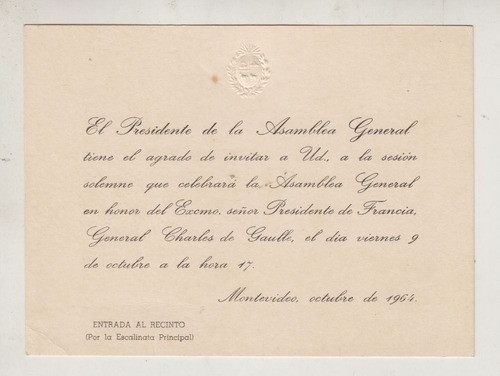 El Presidente de la Asamblea General
tiene el agrado de invitar a Ud., a la sesión
solemne que celebrará la Asamblea General
en honor del Excmo. señor Presidente de Francia,
General Charles de Gaulle, el día viernes 9
de octubre a la hora 17.
Montevideo, octubre de 1964.
ENTRADA AL RECINTO
(Por la Escalinata Principal)